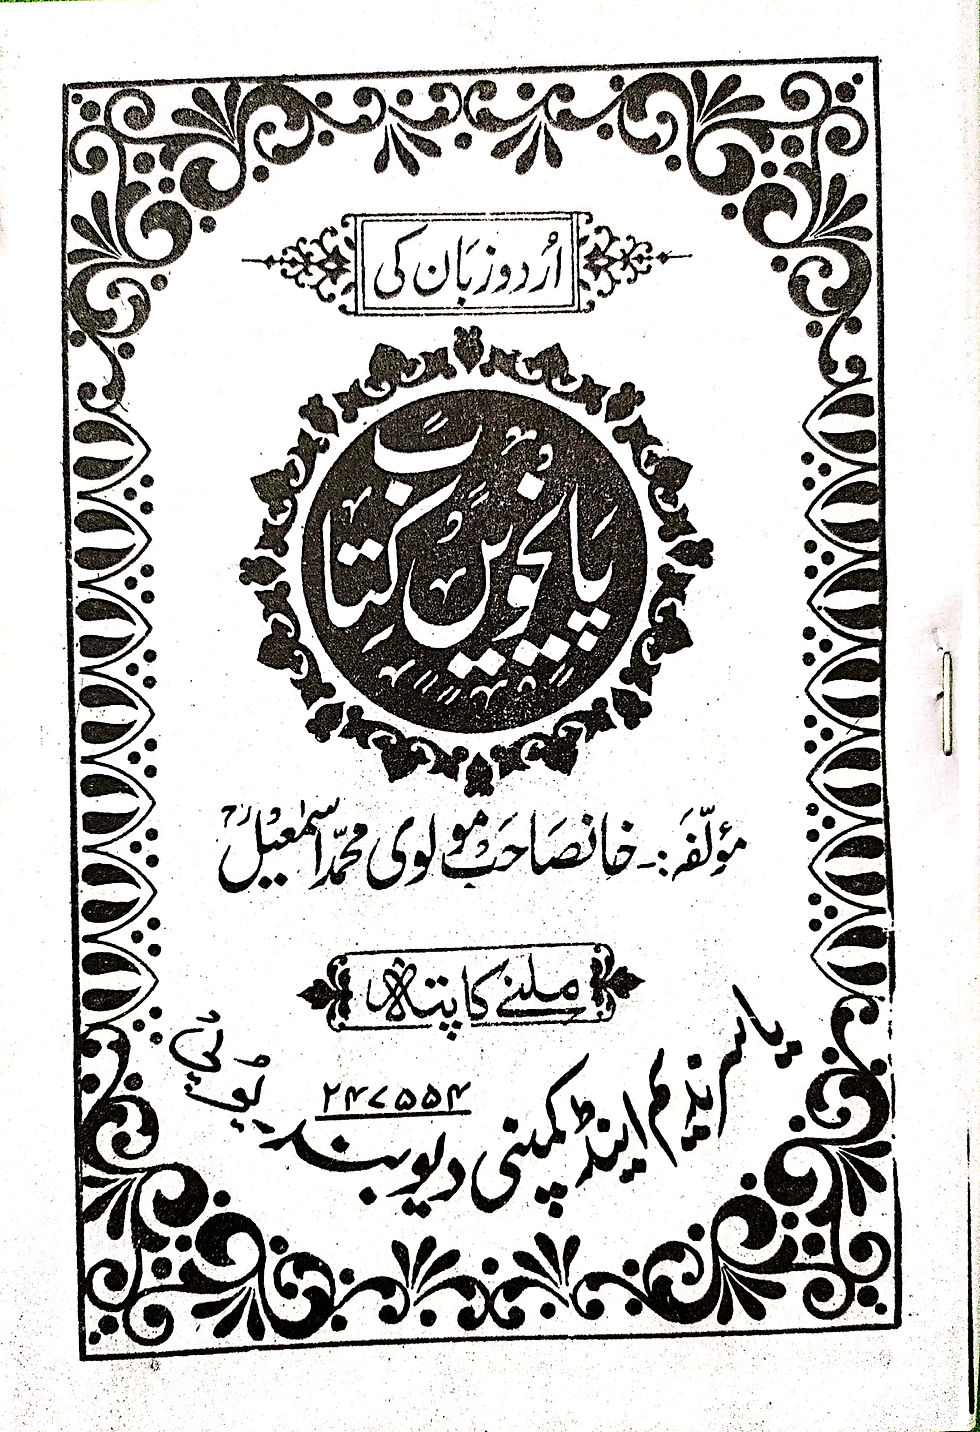 اُردو زبَان کی
پَانچویں کِتَابَ
مؤلّفَہ:۔ خانصَاحَبْ مولوی محمّد اسمٰعیلؒ
ملنے کا پتہ
یاسر ندیم اینڈ کمپنی دیوبند۔ یُو پی
۲۴۷۵۵۴